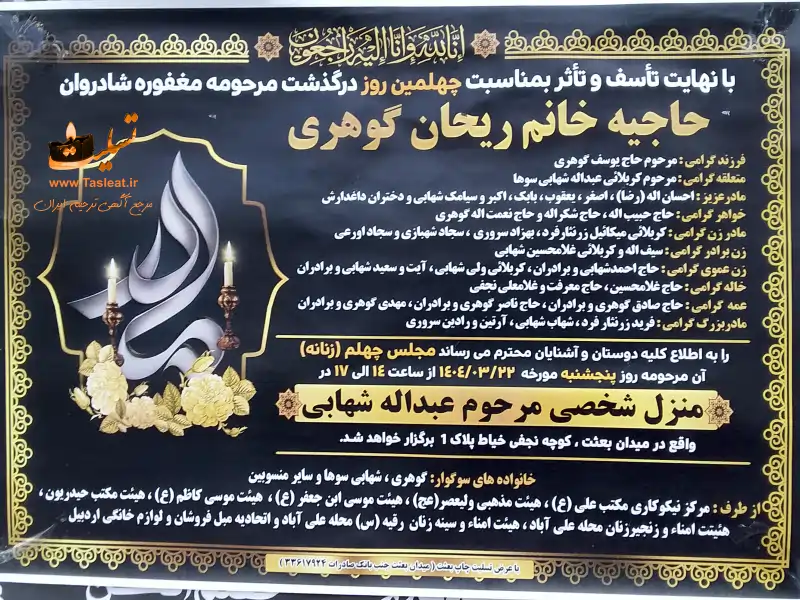 انا لله و انا الیه راجعون
با نهایت تأسف و تأثر بمناسبت چهلمین روز درگذشت مرحومه مغفوره شادروان
حاجیه خانم ریحان گوهری
فرزند گرامی : مرحوم حاج یوسف گوهری
متعلقه گرامی : مرحوم کربلائی عبداله شهابی سوها
مادر عزیز : احسان اله (رضا) ، اصغر ، یعقوب ، بابک ، اکبر و سیامک شهابی و دختران داغدارش
خواهر گرامی : حاج حبیب اله ، حاج شکراله و حاج نعمت اله گوهری
مادر زن گرامی : کربلائی میکائیل زرنثارفرد ، بهزاد سروری ، سجاد شهبازی و سجاد اورعی
زن برادر گرامی : سیف اله و کربلائی غلامحسین شهابی
زن عموی گرامی : حاج احمدشهابی و برادران ، کربلائی ولی شهابی ، آیت و سعید شهابی و برادران
خاله گرامی : حاج غلامحسین ، حاج معرفت و غلامعلی نجفی
عمه گرامی : حاج صادق گوهری و برادران ، حاج ناصر گوهری و برادران ، مهدی گوهری و برادران
مادربزرگ گرامی : فرید زرنثار فرد ، شهاب شهابی ، آرتین و رادین سروری
را به اطلاع کلیه دوستان و آشنایان محترم می رساند مجلس چهلم (زنانه)
آن مرحومه روز پنجشنبه مورخه ۱۴۰۴/۰۳/۲۲ از ساعت ۱۴ الی ۱۷ در
منزل شخصی مرحوم عبداله شهابی
واقع در میدان بعثت ، کوچه نجفی خیاط پلاک 1 برگزار خواهد شد.
خانواده های سوگوار : گوهری ، شهابی سوها و سایر منسوبین
از طرف : مرکز نیکوکاری مکتب علی (ع) ، هیئت مذهبی ولیعصر(عج) ، هیئت موسی ابن جعفر (ع) ، هیئت موسی کاظم (ع) ، هیئت مکتب حیدریون ،
هئیت امناء و زنجیرزنان محله علی آباد ، هیئت امناء و سینه زنان رقیه (س) محله علی آباد و اتحادیه مبل فروشان و لوازم خانگی اردبیل
با عرض تسلیت چاپ بعثت ( میدان بعثت جنب بانک صادرات ۳۳۶۱۷۹۲۴ )
تسلیت
www.Tasleat.ir
مرجع آگهی ترحیم ایران